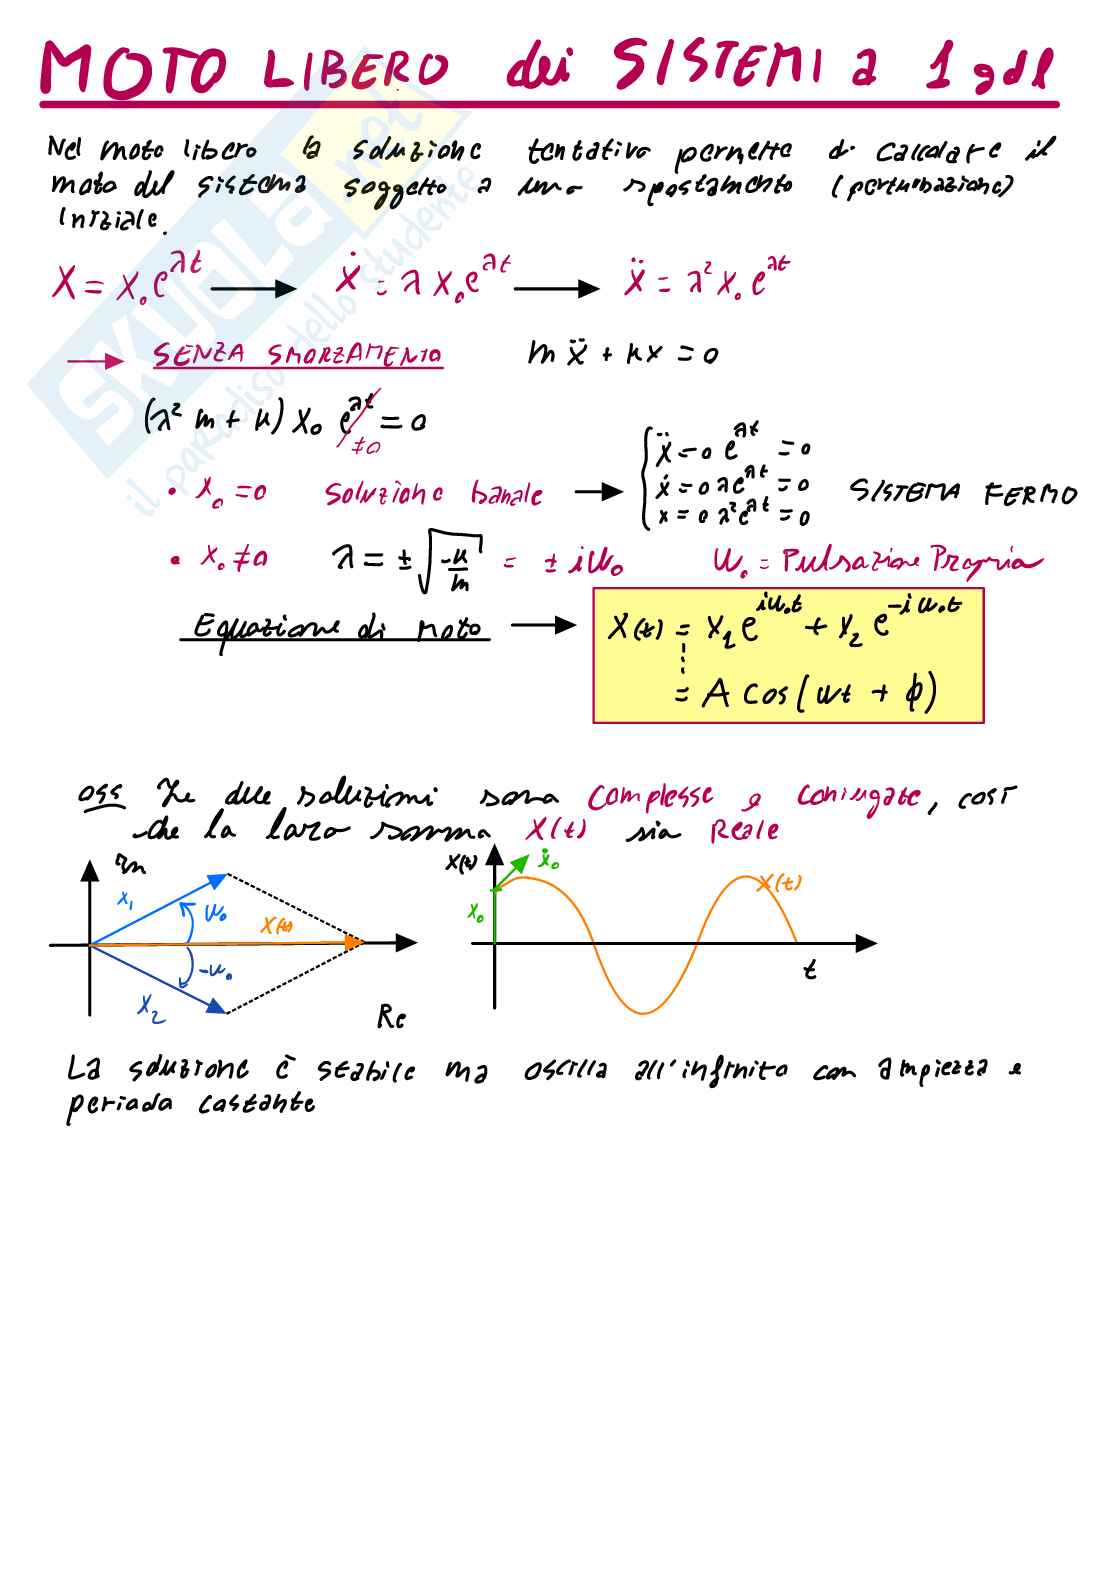 MOTO LIBERO dei SISTEMI a 1 gdl
Nel moto libero la soluzione tentativo permette di calcolare il
moto del sistema soggetto a uno spostamento (perturbazione)
iniziale.
X = X₀e^λt → Ẋ = λ X₀e^λt → Ẍ = λ² X₀ e^λt
→ SENZA SMORZAMENTO mẍ + kx = 0
(λ² m + k) X₀ e^λt = 0
≠0
• X₀ = 0 Soluzione banale → { Ẍ = 0 e^λt = 0
Ẋ = 0 λe^λt = 0 SISTEMA FERMO
x = 0 λ²e^λt = 0
• X₀ ≠ 0 λ = ± √(-k/m) = ± iω₀ ω₀ = Pulsazione Propria
Equazione di moto → X(t) = X₁ e^iω₀t + X₂ e^-iω₀t
= A cos(ωt + ϕ)
oss Le due soluzioni sono complesse e coniugate, così
che la loro somma X(t) sia Reale
Im
X₁
ω₀
X(t)
-ω₀
X₂
Re
X(t)
ẋ₀
X₀
X(t)
t
La soluzione è stabile ma oscilla all'infinito con ampiezza e
periodo costante
SKUOLA.net
il paradiso dello studente